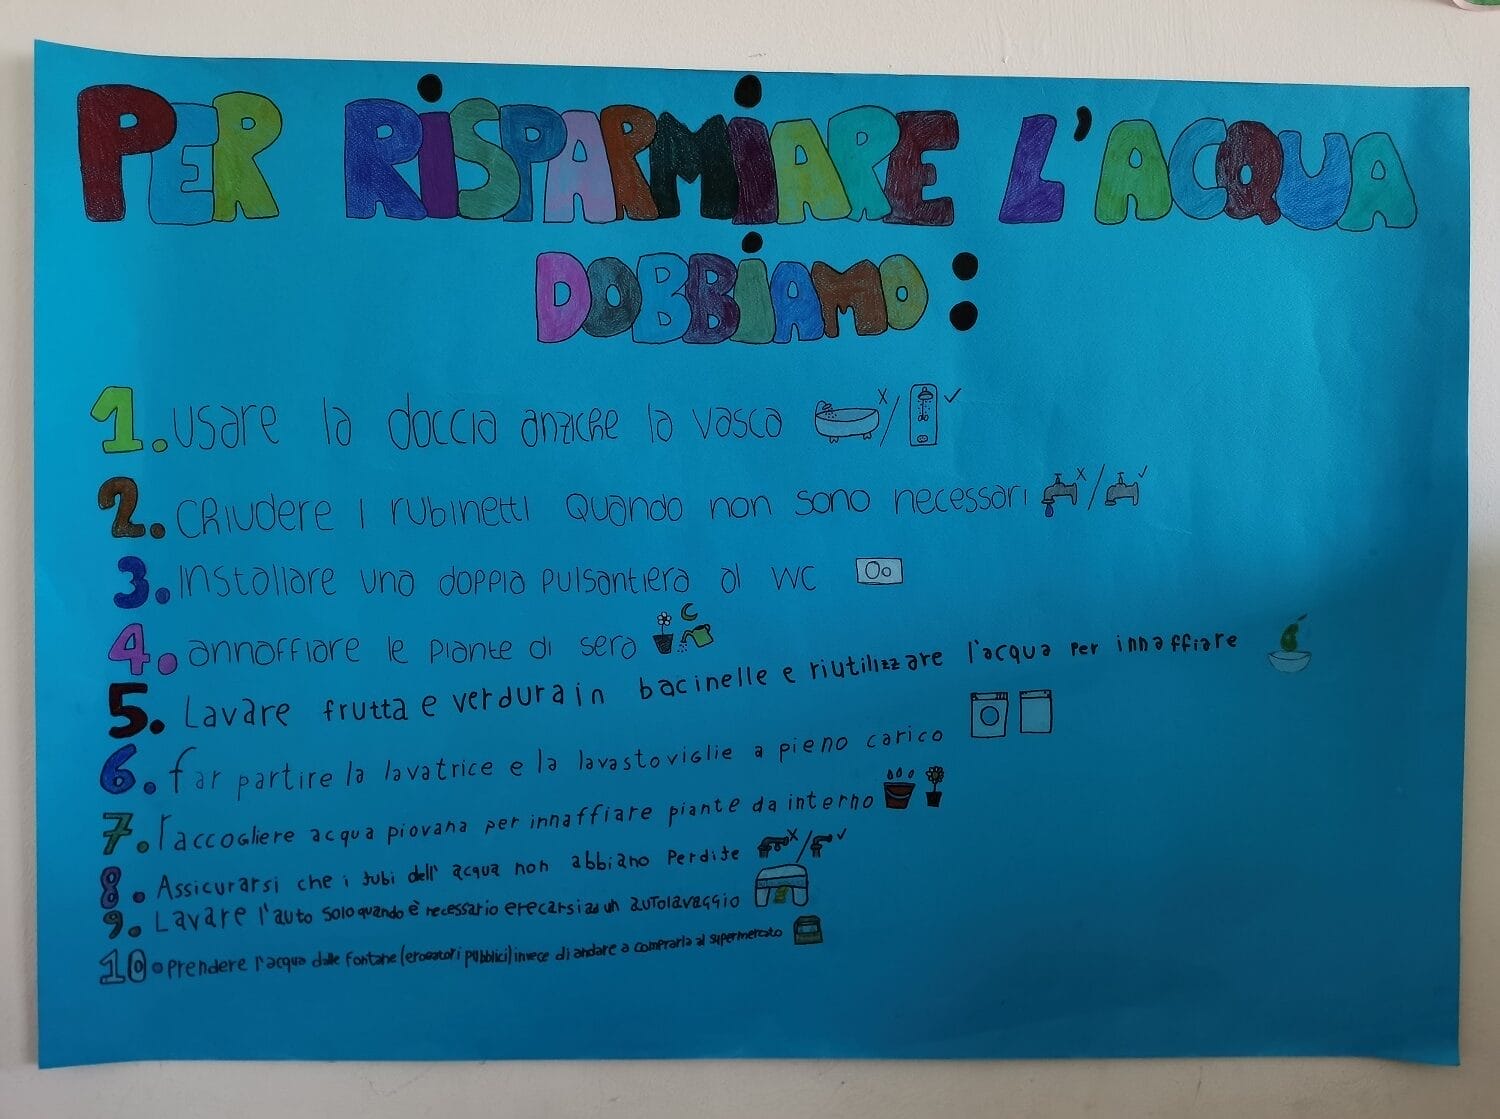 PER RISPARMIARE L'ACQUA
DOBBIAMO:
1. USARE la DOCCIA ANZICHE la VASCA
2. CHIUDERE I RUBINETTI QUANDO NON SONO NECESSARI
3. INSTALLARE UNA DOPPIA PULSANTIERA AL WC
4. ANNAFFIARE le PIANTE DI SERA
5. Lavare frutta e verdura in bacinelle e riutilizzare l'acqua per innaffiare
6. far partire la lavatrice e la lavastoviglie a pieno carico
7. raccogliere acqua piovana per innaffiare piante da interno
8. Assicurarsi che i tubi dell'acqua non abbiano perdite
9. LAVARE l'auto solo quando è necessario e recarsi ad un autolavaggio
10. prendere l'acqua dalle fontane (erogatori pubblici) invece di andare a comprarla al supermercato